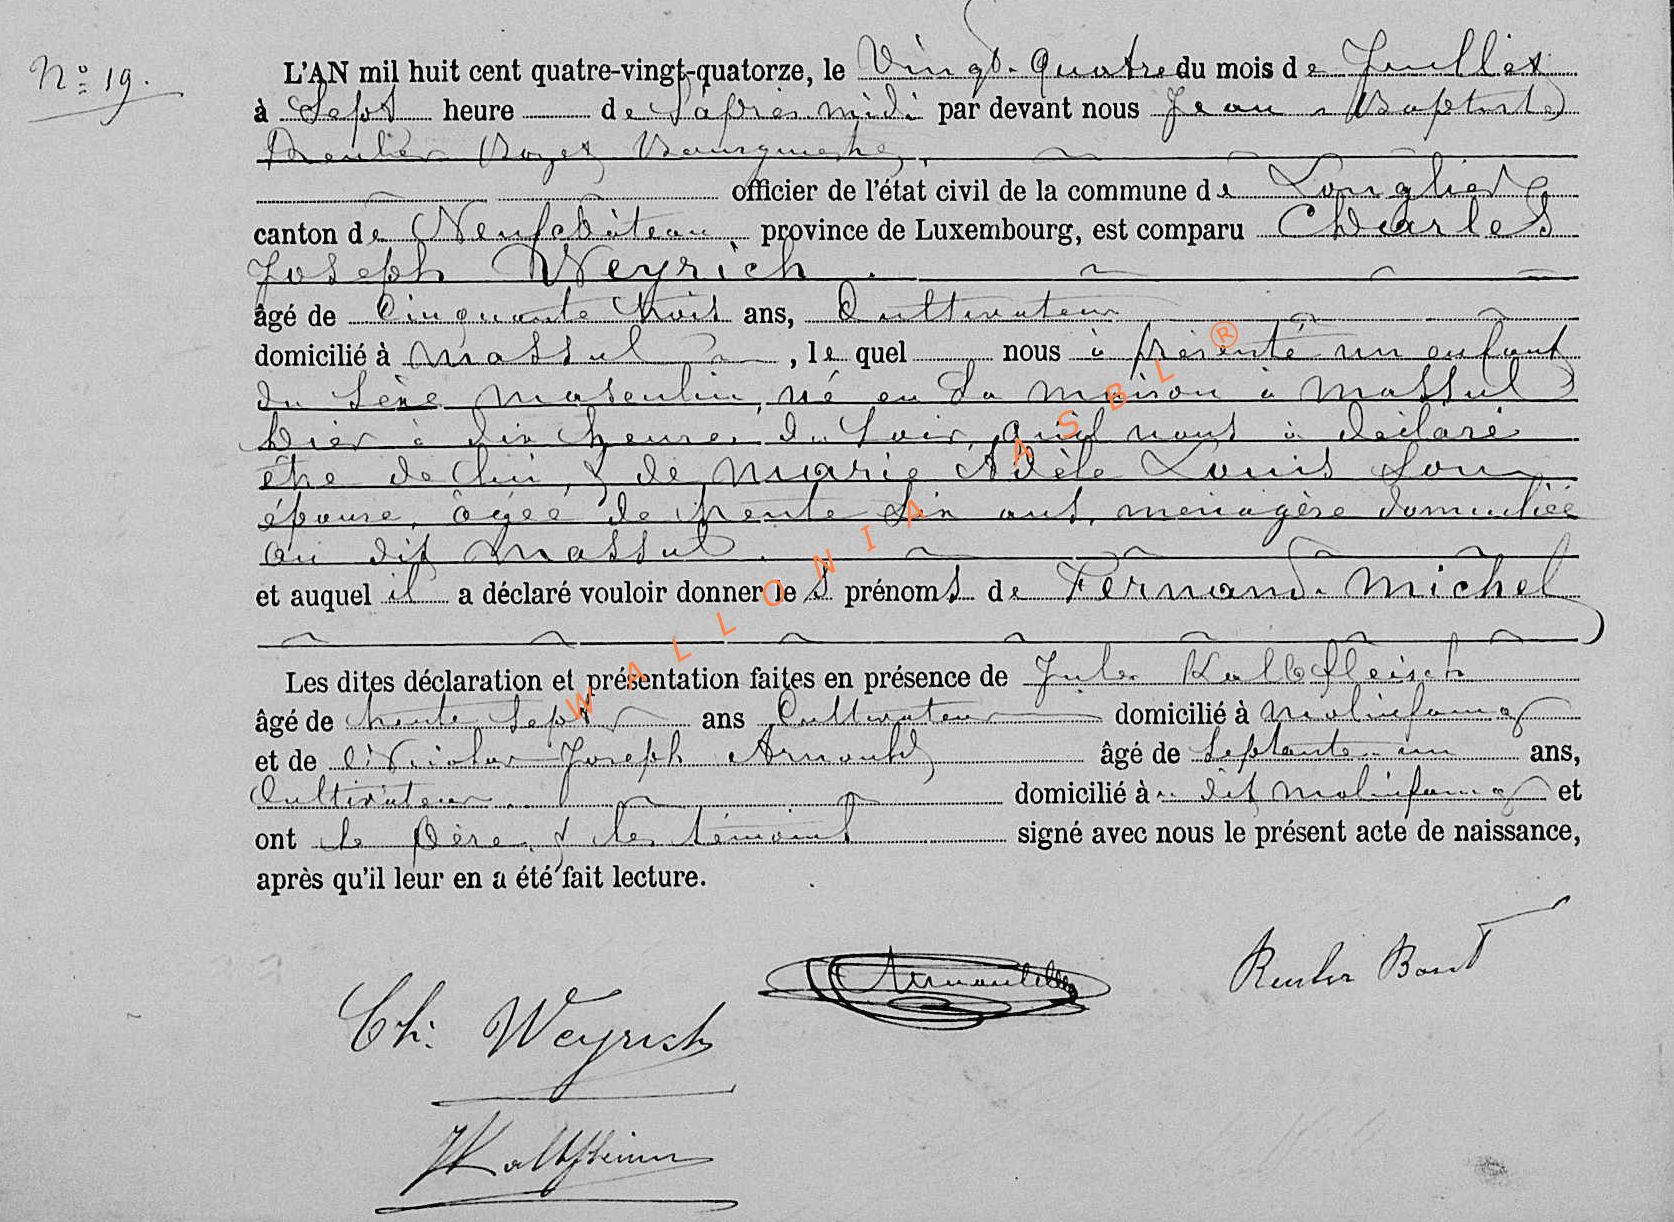 N° 19.
L'AN mil huit cent quatre-vingt-quatorze, le Vingt-Quatre du mois de Juillet
à Sept heure de l'après midi par devant nous Jean Baptiste
Reuler Bourgmestre,
officier de l'état civil de la commune de Longlier
canton de Neufchâteau, province de Luxembourg, est comparu Charles
Joseph Weyrich
âgé de Cinquante trois ans, Cultivateur
domicilié à Massul, le quel nous à présenté un enfant
du sexe masculin, né en sa maison à Massul
hier à dix heures du soir, qu'il nous à déclaré
être de lui, & de Marie Adèle Louis son
épouse, âgée de trente six ans, ménagère domiciliée
au dit Massul.
et auquel il a déclaré vouloir donner le s prénoms de Fernand Michel
Les dites déclaration et présentation faites en présence de Jules Kalbfleisch
âgé de trente sept ans Cultivateur domicilié à Molinfaing
et de Nicolas Joseph Arnould âgé de septante-un ans,
Cultivateur domicilié à dit Molinfaing et
ont le Père, & les témoins signé avec nous le présent acte de naissance,
après qu'il leur en a été fait lecture.
Arnould
Reuler
Ch: Weyrich
WALLONIA ASBL ®